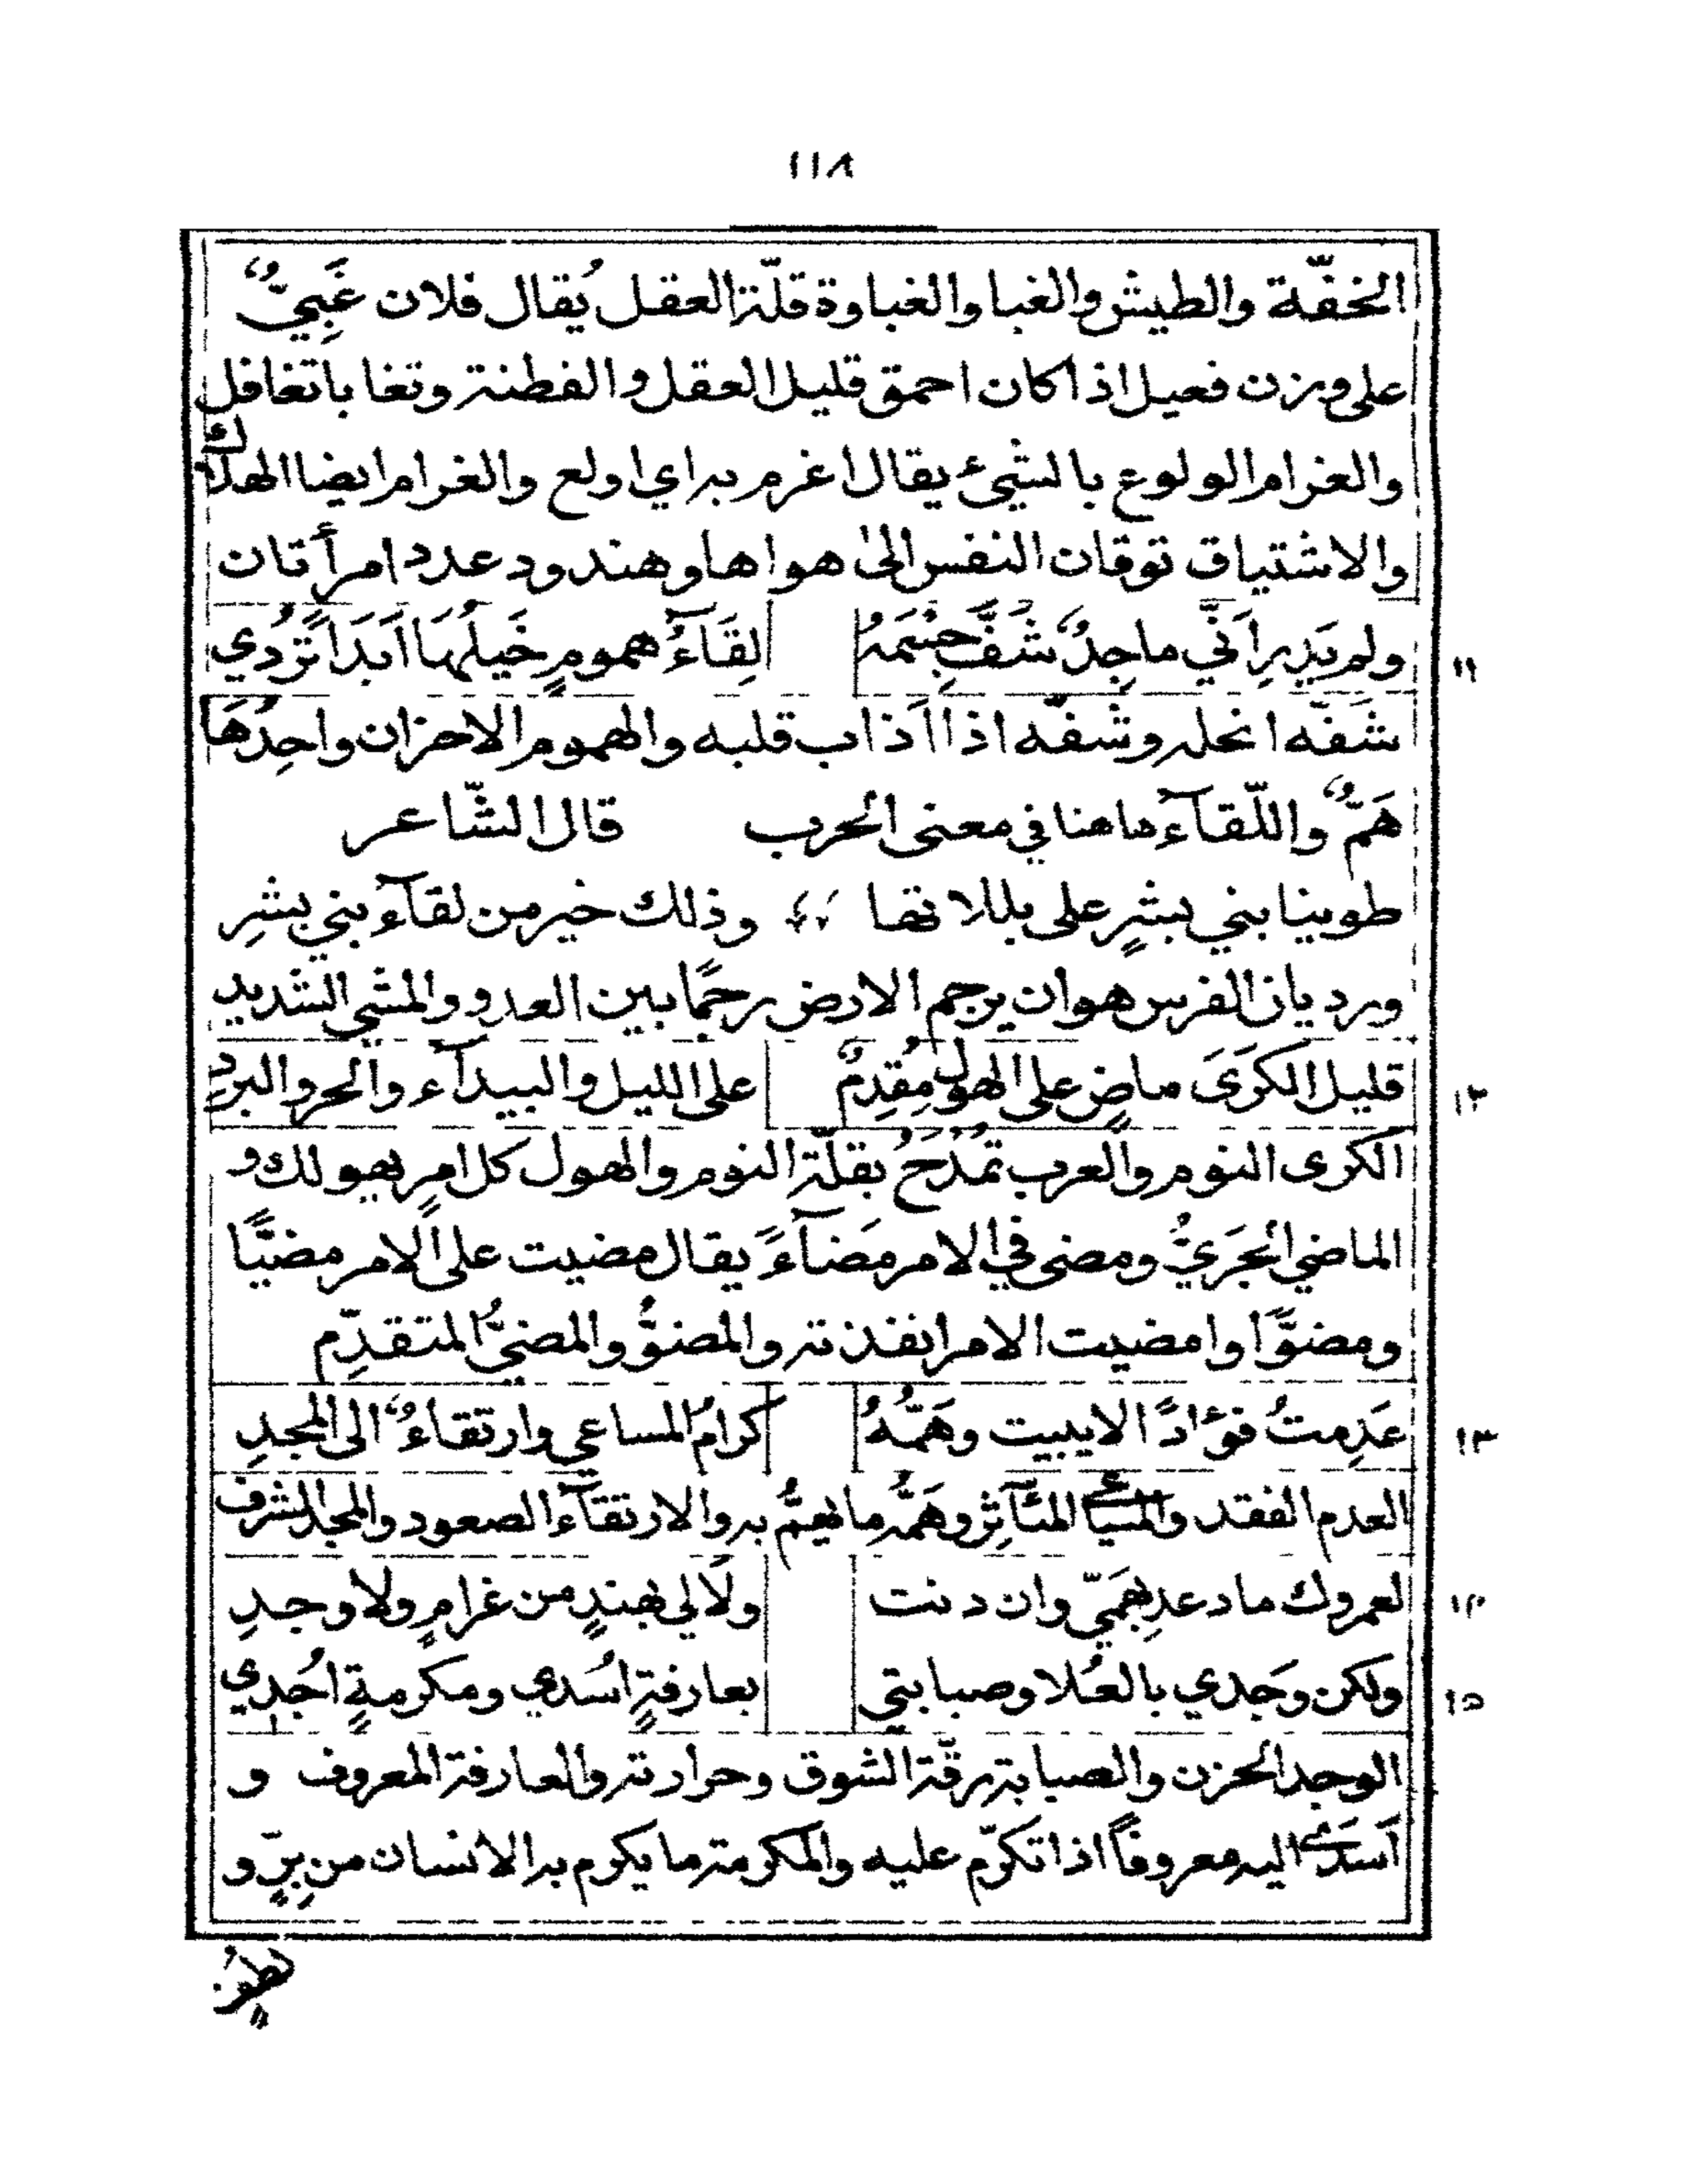 ١١٨
الخفّة والطيش والغبا والغباوة قلّة العقل يُقال فلان غَبِيٌّ
على وزن فعيل اذا كان احمق قليل العقل والفطنة وتغابا تغافل
والغرام الولوع بالشيء يقال اغرم به اي اولع والغرام ايضا الهلاك
والاشتياق توقان النفس الى هواها وهند ودعد امرأتان
ولم يَدرِ اَنّي ماجِدٌ شَفَّ جِسْمَهُ لِقَآءُ همومٍ خَيلُهَا اَبَدَاً تَرْدُي ١١
شَفّه انحله وشفّه اذا اَذاب قلبه والهموم الاحزان واحِدُهَا
هَمٌّ واللّقآء هاهنا في معنى الحرب قال الشّاعر
طوينا بني بشرٍ على بللاتها وذلك خير من لقآء بني بشرِ
ورديان الفرس هو ان يرجم الارض رجمًا بين العدو والمشي الشديد
قليل الكَرَىَ ماضٍ على الهول مِقدِمٌ على الليل والبيدآء والحر والبردِ ١٢
الكرى النوم والعرب تَمْدَحُ بقلّة النوم والهول كل امرٍ يهولك و
الماضي الجَرَيُّ ومضى في الامر مَضَآءً يقال مضيت على الامر مضيًّا
ومضوًّا وامضيت الامر انفذته والمضوُّ والمضيُّ المتقدّم
عَدِمتُ فؤادً الا يبيت وهَمُّهُ كرامُ المساعي وارتقاءٌ الى المجدِ ١٣
العدم الفقد والمساعي المآثِر وهَمُّه ما يهمُّ به والارتقآء الصعود والمجد الشرف
لعمروك ما دعدِ بهَمّي وان دنت ولَا لي بهندٍ من غرامٍ ولا وجدِ ١٤
ولكن وَجدي بالعُلا وصبابتي بعارفةٍ اُسَدي ومكرمةٍ اُجدِي ١٥
الوجد الحزن والصبابة رقّة الشوق وحرارته والعارفة المعروف و
اَسدَى اليه معروفاً اذا تكرّم عليه والمكرمة ما يكرم به الانسان من بِرٍّ و